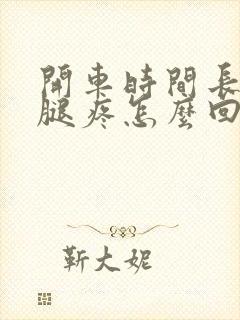 開車時間長
腿疼怎麼回
靳大妮